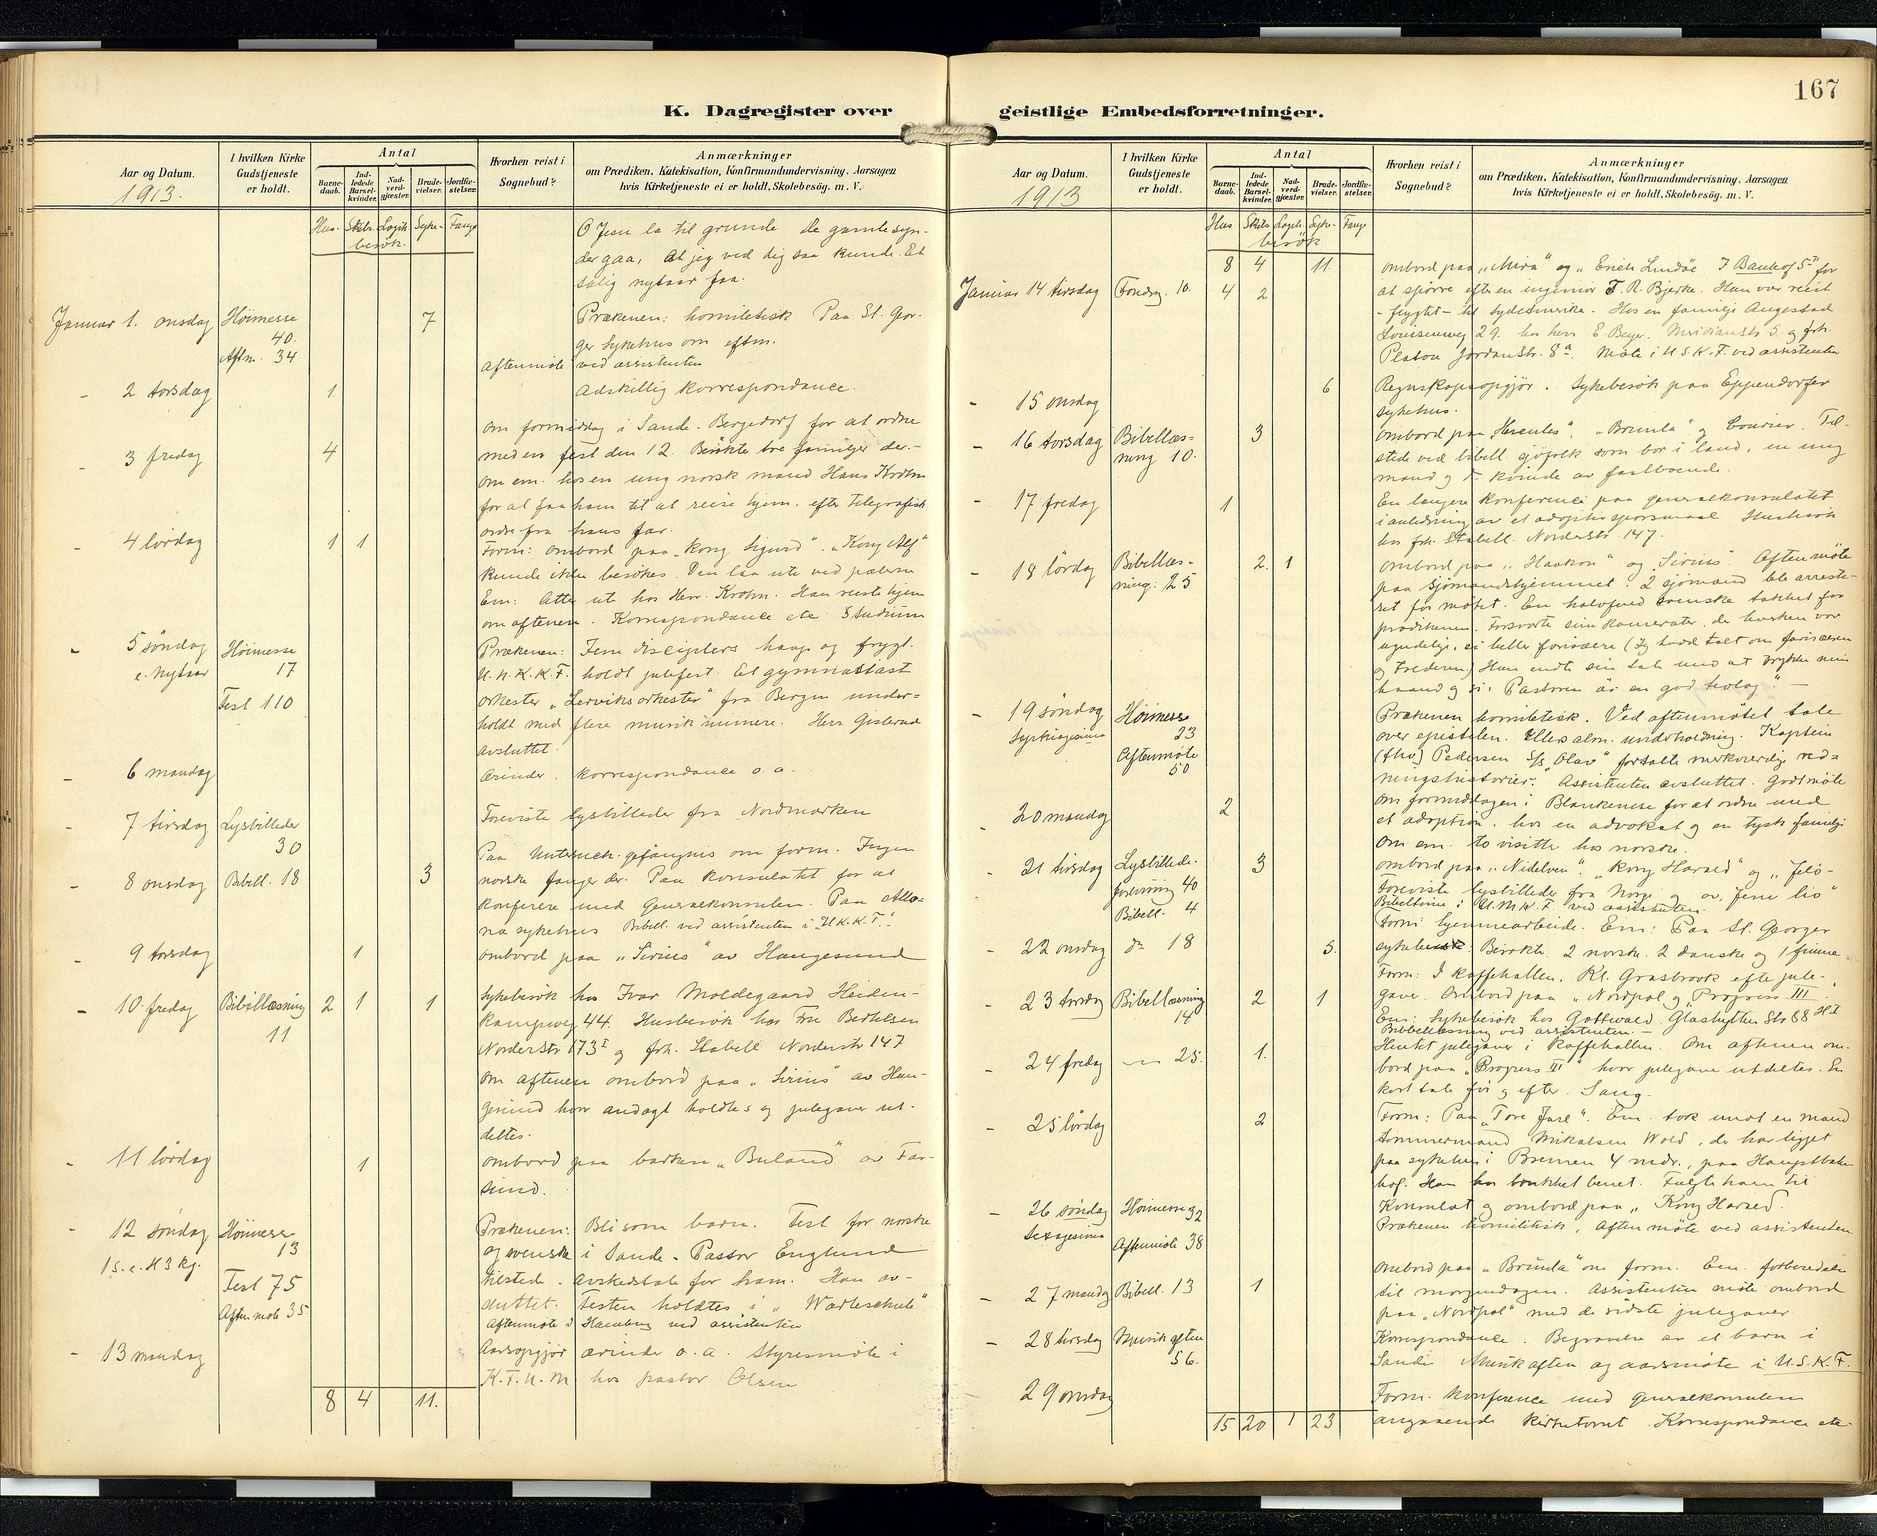 K. Dagregister over
Aar og Datum.
1913.
I hvilken Kirke
Gudstjeneste
er holdt.
Antal
Barne-
daab.
Ind-
ledede
Barsel-
kvinder.
Nad-
verd-
gjæster.
Brude-
vielser.
Jordfæ-
stelser.
Hvorhen reist i
Sognebud?
Anmærkninger
om Prædiken, Katekisation, Konfirmandundervisning. Aarsagen
hvis Kirketjeneste ei er holdt, Skolebesøg. m. V.
Hus- Skibs- Logih- Syke- Fange
besøk.
O Jesu la til grunde De gamle syn-
der gaa, At jeg ved dig saa kunde Et
salig nytaar faa.
Januar 1. onsdag Høimesse 7 Prækenen: homiletisk Paa St. Geor-
40. ger Sykehus om eftm.
Aftm. 34 aftenmøte ved assistenten
- 2 torsdag 1 Adskillig korrespondance.
om formiddag i Sande-Bergedorf for at ordne
- 3 fredag 4 med en fest den 12. Besøkte tre familjer der.-
om em. hos en ung norsk mand Hans Krohn
for at faa ham til at reise hjem. efter telegrafisk
ordre fra hans far.
- 4 lørdag 1 1 Form: ombord paa "Kong Sigurd". "Kong Alf"
kunde ikke besøkes. Den laa ute ved pælerne
Em: Atter ute hos Herr. Krohn. Han reiste hjem
om aftenen. Korrespondance etc. Studium
- 5 søndag Høimesse Prækenen: Jesu disciplers haap og frygt.
e. nytaar 17 U.N.K.K.F. holdt julefest. Et gymnastast
Fest 110 orkester "Lerviksorkester" fra Bergen under-
holdt med flere musiknumere. Herr Gisterud
avsluttet.
- 6 mandag Erinder. korrespondance o.a.
- 7 tirsdag Lysbilleder Foreviste lysbilleder fra Nordmarken
30
Paa Untersuch. gefängnis om form. Ingen
- 8 onsdag Bibell. 18 3 norske fanger der. Paa konsulatet for at
konferere med generalkonsulen. Paa Alto-
na sykehus Bibell. ved assistenten i "U.K.K.F."
- 9 torsdag 1 ombord paa "Sirius" av Haugesund
- 10 fredag Bibellæsning 2 1 1 Sykebesøk hos Ivar Moldegaard Heiden-
11 kampsweg 44. Husbesøk hos Fru Berthelsen
Norderstr 173I og frk. Stabell Norderstr 147
Om aftenen ombord paa "Sirius" av Hau-
gesund hvor andagt holdtes og julegaver ut-
deltes.
- 11 lørdag 1 ombord paa barken "Buland" av Far-
sund.
- 12 søndag Høimesse Prækenen: Bli som barn. Fest for norske
13 og svenske i Sande. Pastor Englund
1 s. e. H 3 kg. Fest 75 tilstede. avskedstale for ham. Han av-
sluttet. Festen holdtes i "Warteschule"
Aftenmøte 35 Aftenmøte i Hamburg ved assistenten
- 13 mandag Aarsopgjør ærinder o.a. Styresmøte i
K.F.U.M hos pastor Olsen
8 4 11.
geistlige Embedsforretninger.
167
Aar og Datum.
1913
I hvilken Kirke
Gudstjeneste
er holdt.
Antal
Barne-
daab.
Ind-
ledede
Barsel-
kvinder.
Nad-
verd-
gjæster.
Brude-
vielser.
Jordfæ-
stelser.
Hvorhen reist i
Sognebud?
Anmærkninger
om Prædiken, Katekisation, Konfirmandundervisning. Aarsagen
hvis Kirketjeneste ei er holdt, Skolebesög. m. V.
Hus Skibs Logih. Syke- Fang
besøk
8 4 11. ombord paa "Mira" og "Erich Lindøe I Bankof 5II for
Januar 14 tirsdag 10. 4 2 at spørre efter en ingeniør T. R. Bjerke. Han var reist
- flygtet - til Sydamerika. Hos en familje Angestad
Louisenweg 29. hos herr E. Beyer. Meridianstr 5. og frk.
Platou Jordanstr. 8a. Møte i U S K. F. ved assistenten
- 15 onsdag 6 Regnskapsopgjør. Sykebesøk paa Eppendorfer
sykehus.
- 16 torsdag Bibellæs- 3 ombord paa "Hercules", "Brunla" og Courier. Til-
ning 10. stede ved bibell. sjøfolk som bor i land, en ung
mand og kvinde av fastboende.
- 17 fredag 1 En længere konference paa generalkonsulatet
i anledning av et adoptionsspørsmaal Husbesøk
hos frk. Stabell. Norderstr. 147.
- 18 lørdag Bibellæs- 2. 1 ombord paa "Haakon" og "Sirius". Aftenmøte
ning: 25 paa sjømandshjemmet. 2 sjømænd ble arreste-
ret før møtet. En halvfuld svenske takket for
prædikenen. Forsvarte sine kamerater, de hverken var
ugudelige, ei heller farisæere (Jeg hadde talt om farisæeren
og tolderen) Han endte sin tale med at trykke min
haand og si: Pastoren är en god teolog". -
- 19 søndag Høimesse Prækenen homiletisk. Ved aftenmøtet tale
Septuagesima 23 over epistelen. Ellers alm. underholdning. Kaptein
Aftenmøte (Ths) Pedersen S/S "Olav" fortalte merkværdige red-
50 ningshistorier. Assistenten avsluttet. Godt møte
- 20 mandag 2 om formiddagen i Blankenese for at ordne med
et adoption. hos en advokat og en tysk familje
Om em. to visitter hos norske.
- 21 tirsdag Lysbillede. 3 ombord paa "Nidelven". "Kong Harald" og "Jelö-
forevisning 40 Foreviste lysbilleder fra Norge og av Jesu liv"
Bibell. 4 Bibeltime i U.M.K.F. ved assistenten.
- 22 onsdag do 18 5. Form: hjemmearbeide. Em: Paa St. Georger
sykehus. Besøkte 2 norske. 2 danske og 1 finne.
Form: I kaffehallen. Kl. Grasbrook efter jule-
- 23 torsdag Bibellæsning 2 1 gaver. Ombord paa "Nordpol og "Progress III
14 Em: Sykebesøk hos Gottwald. Glashytten Str 88 HI
Bibbellæsning ved assistenten. -
- 24 fredag — 25. 1. Hentet julegaver i kaffehallen. Om aftenen om-
bord paa "Progress III" hvor julegave utdeltes. En
kort tale før og efter. Sang.
- 25 lørdag 2 Form: Paa "Tore Jarl". Em. tok imot en mand
tømmermand Mikalsen Wold, der har ligget
paa sykehus i Bremen 4 mdr., paa Hauptbahn
hof. Han har brukket benet. Fulgte ham til
- 26 søndag Høimesse 32 Konsulat og ombord paa "Kong Harald.
Sexagesima Aftenmøte 38 Prækenen homiletisk. Aftenmøte ved assistenten
- 27 mandag Bibell. 13 1 ombord paa "Brunla" om form. Em. forberedelse
til morgendagen. Assistenten møte ombord
paa "Nordpol" med de sidste julegaver.
- 28 tirsdag Musikaften Korrespondance. Begravelse av et barn i
56. Sande Musikaften og aarsmøte i U.S.K.F.
- 29 onsdag Form. Konference med generalkonsulen
15 20 1 23 angaaende kirketomt. Korrespondance etc-